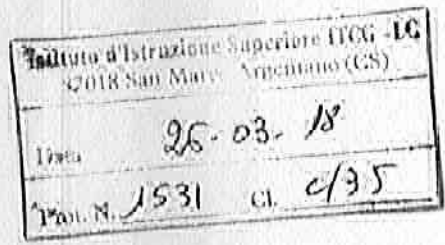 Istituto d'Istruzione Superiore ITCG - LG
87018 San Marco Argentano (CS)
Data 26-03-18
Prot. N. 1531 Cl. c/35